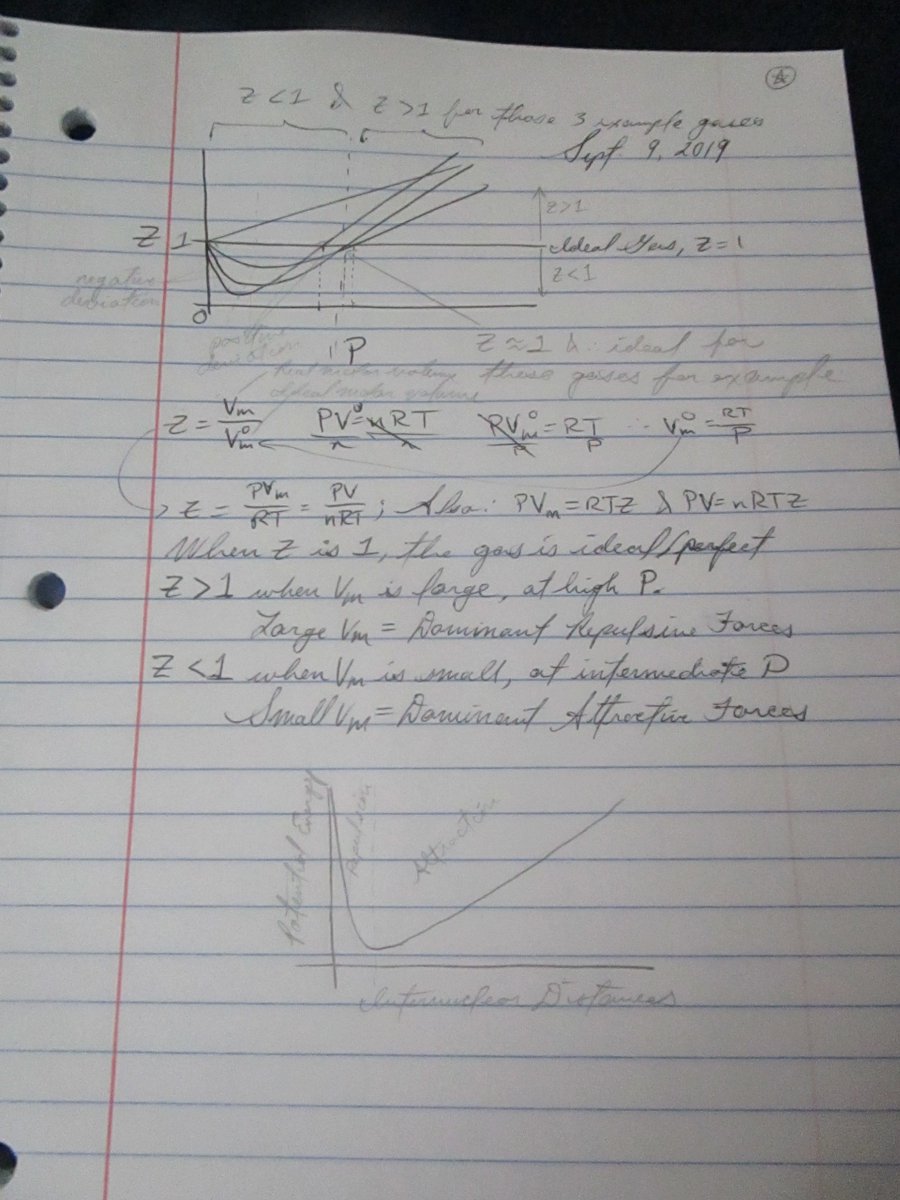 Z < 1 & Z > 1 for those 3 example gases
Sept. 9, 2019
Z>1
Z 1
Ideal Gas, Z = 1
Z<1
negative
deviation
0
positive
deviation
P
Z ≈ 1 & ∴ ideal for
these gases for example
Real molar volume
Ideal molar volume
Z = Vm/Vm° PV°/n = nRT/n PVm°/P = RT/P ∴ Vm° = RT/P
Z = PVm/RT = PV/nRT ; Also: PVm = RTZ & PV = nRTZ
When Z is 1, the gas is ideal/perfect
Z > 1 when Vm is large, at high P.
Large Vm = Dominant Repulsive Forces
Z < 1 when Vm is small, at intermediate P
Small Vm = Dominant Attractive Forces
Potential Energy
Repulsion
Attraction
Internuclear Distances